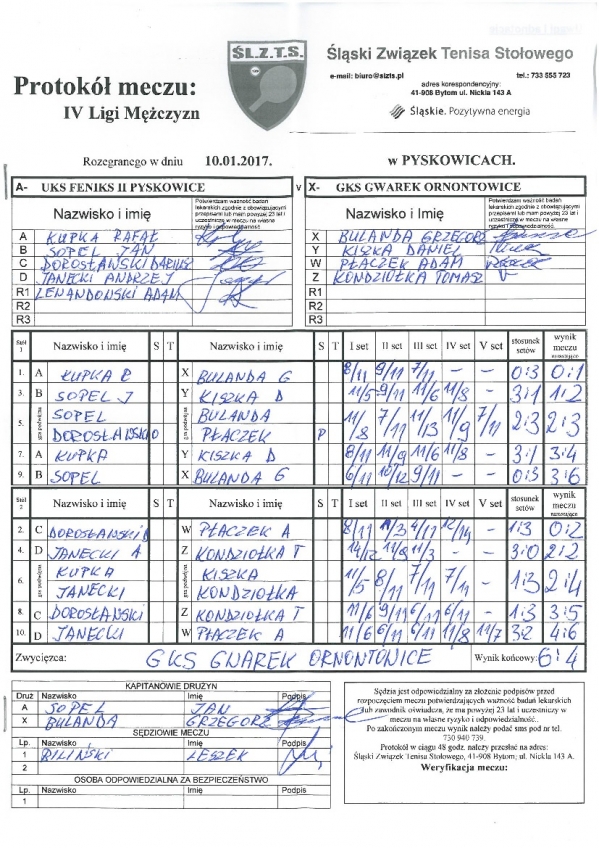 ŚL.Z.T.S.
Śląski Związek Tenisa Stołowego
e-mail: biuro@slzts.pl tel.: 733 555 723
adres korespondencyjny:
41-908 Bytom ul. Nickla 143 A
Śląskie. Pozytywna energia
Protokół meczu:
IV Ligi Mężczyzn
Rozegranego w dniu 10.01.2017. w PYSKOWICACH.
A- UKS FENIKS II PYSKOWICE v X- GKS GWAREK ORNONTOWICE
Nazwisko i imię Potwierdzam ważność badań lekarskich zgodnie z obowiązującymi przepisami lub mam powyżej 23 lat i uczestniczę w meczu na własne ryzyko i odpowiedzialność
Nazwisko i imię Potwierdzam ważność badań lekarskich zgodnie z obowiązującymi przepisami lub mam powyżej 23 lat i uczestniczę w meczu na własne ryzyko i odpowiedzialność
A KUPKA RAFAŁ X BULANDA GRZEGORZ
B SOPEL JAN Y KISZKA DANIEL
C DOROSŁAWSKI DARIUSZ W PŁACZEK ADAM
D JANECKI ANDRZEJ Z KONDZIOŁKA TOMASZ
R1 LEWANDOWSKI ADAM R1
R2 R2
R3 R3
Stół 1 Nazwisko i imię S T Nazwisko i imię S T I set II set III set IV set V set stosunek setów wynik meczu narastająco
1. A KUPKA R X BULANDA G 8/11 9/11 7/11 - - 0:3 0:1
3. B SOPEL J Y KISZKA D 11/5 9/11 11/6 11/8 - 3:1 1:2
5. gra podwójna SOPEL BULANDA 11/8 7/11 11/13 11/9 7/11 2:3 2:3
DOROSŁAWSKI D PŁACZEK P
7. A KUPKA Y KISZKA D 8/11 11/9 11/6 11/8 - 3:1 3:4
9. B SOPEL X BULANDA G 6/11 10/12 9/11 - - 0:3 3:6
Stół 2 Nazwisko i imię S T Nazwisko i imię S T I set II set III set IV set V set stosunek setów wynik meczu narastająco
2. C DOROSŁAWSKI D W PŁACZEK A 8/11 11/3 4/11 12/14 - 1:3 0:2
4. D JANECKI A Z KONDZIOŁKA T 14/12 11/8 11/3 - - 3:0 2:2
6. gra podwójna KUPKA KISZKA 11/5 8/11 7/11 7/11 - 1:3 2:4
JANECKI KONDZIOŁKA
8. C DOROSŁAWSKI Z KONDZIOŁKA T 11/6 9/11 6/11 6/11 - 1:3 3:5
10. D JANECKI W PŁACZEK A 11/6 6/11 6/11 11/8 11/7 3:2 4:6
Zwycięzca: GKS GWAREK ORNONTOWICE Wynik końcowy: 6:4
KAPITANOWIE DRUŻYN
Druż Nazwisko Imię Podpis
A SOPEL JAN
X BULANDA GRZEGORZ
SĘDZIOWIE MECZU
Lp. Nazwisko Imię Podpis
1 BILIŃSKI LESZEK
2
OSOBA ODPOWIEDZIALNA ZA BEZPIECZEŃSTWO
Lp. Nazwisko Imię Podpis
1
Sędzia jest odpowiedzialny za złożenie podpisów przed
rozpoczęciem meczu potwierdzających ważność badań lekarskich
lub zawodnik oświadcza, że ma powyżej 23 lat i uczestniczy w
meczu na własne ryzyko i odpowiedzialność.
Po zakończonym meczu wynik należy podać sms pod nr tel.
730 940 739.
Protokół w ciągu 48 godz. należy przesłać na adres:
Śląski Związek Tenisa Stołowego, 41-908 Bytom, ul. Nickla 143 A.
Weryfikacja meczu: